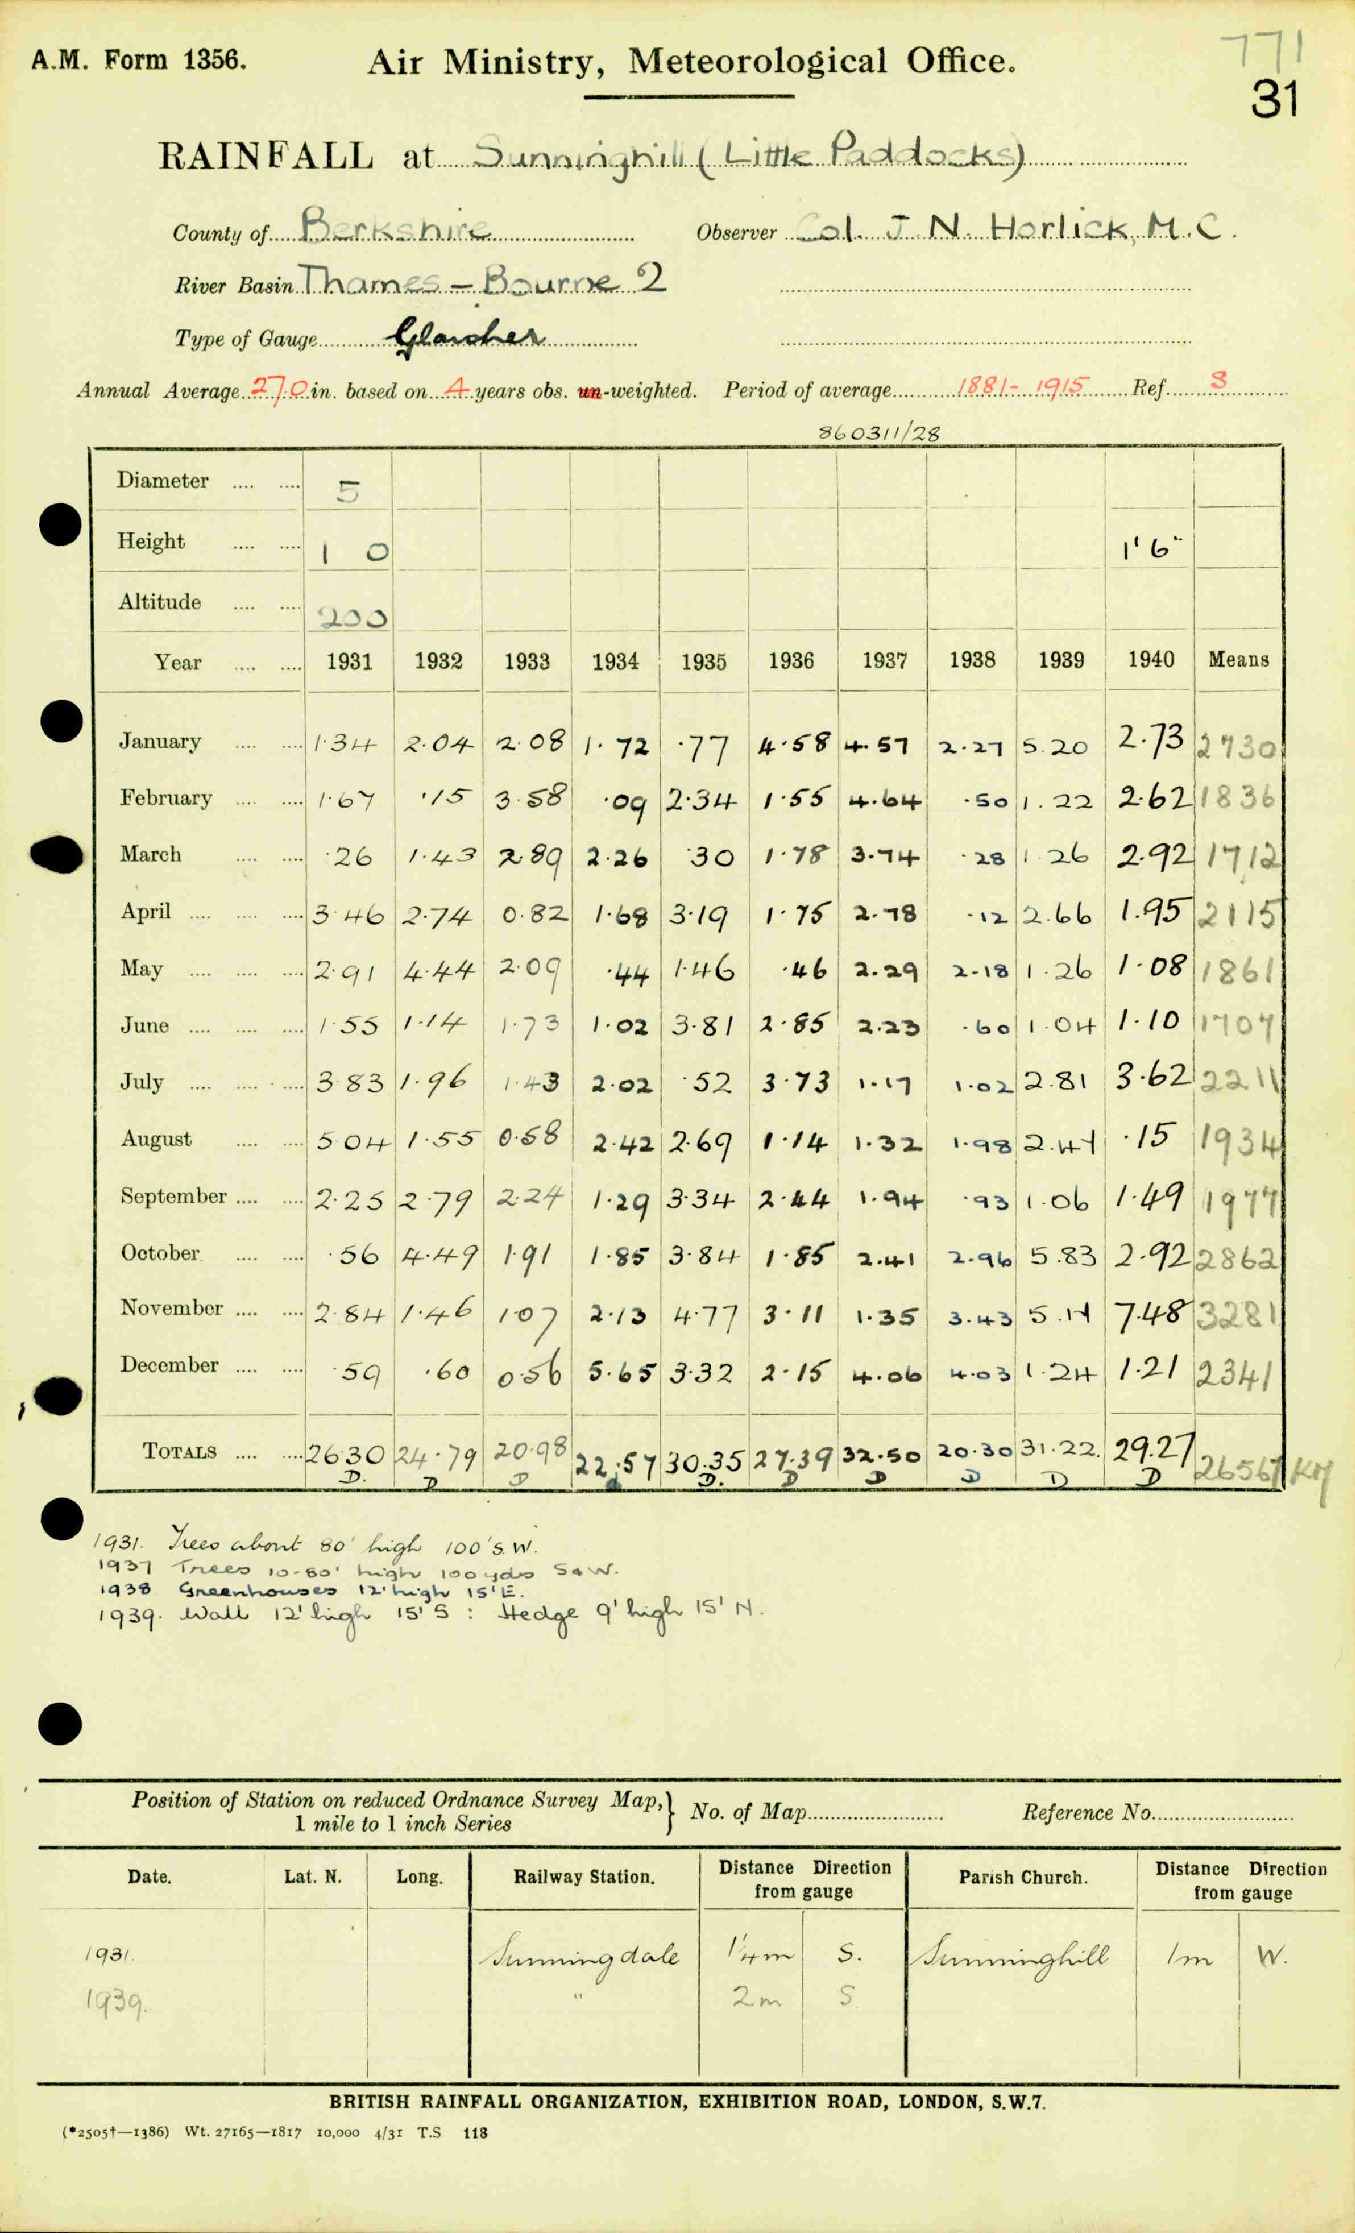 771
31
A.M. Form 1356.
Air Ministry, Meteorological Office.
RAINFALL at Sunninghill (Little Paddocks)
County of Berkshire Observer Col. J. N. Horlick, M.C.
River Basin Thames – Bourne 2
Type of Gauge Glaisher
Annual Average 27.0 in. based on 4 years obs. un-weighted. Period of average 1881-1915 Ref. S
860311/28
Diameter .... .... 5
Height .... .... 1 0 1' 6"
Altitude .... .... 200
Year .... .... 1931 1932 1933 1934 1935 1936 1937 1938 1939 1940 Means
January .... .... 1.34 2.04 2.08 1.72 .77 4.58 4.57 2.27 5.20 2.73 2730
February .... .... 1.67 .15 3.58 .09 2.34 1.55 4.64 .50 1.22 2.62 1836
March .... .... .26 1.43 2.89 2.26 .30 1.78 3.74 .28 1.26 2.92 1712
April .... .... .... 3.46 2.74 0.82 1.68 3.19 1.75 2.78 .12 2.66 1.95 2115
May .... .... .... 2.91 4.44 2.09 .44 1.46 .46 2.29 2.18 1.26 1.08 1861
June .... .... .... 1.55 1.14 1.73 1.02 3.81 2.85 2.23 .60 1.04 1.10 1707
July .... .... .... 3.83 1.96 1.43 2.02 .52 3.73 1.17 1.02 2.81 3.62 2211
August .... .... 5.04 1.55 0.58 2.42 2.69 1.14 1.32 1.98 2.47 .15 1934
September .... .... 2.25 2.79 2.24 1.29 3.34 2.44 1.94 .93 1.06 1.49 1977
October .... .... .56 4.49 1.91 1.85 3.84 1.85 2.41 2.96 5.83 2.92 2862
November .... .... 2.84 1.46 1.07 2.13 4.77 3.11 1.35 3.43 5.17 7.48 3281
December .... .... .59 .60 0.56 5.65 3.32 2.15 4.06 4.03 1.24 1.21 2341
TOTALS .... .... 26.30 24.79 20.98 22.57 30.35 27.39 32.50 20.30 31.22. 29.27 26567
D. D D D. D D D D D
1931. Trees about 80' high 100' S.W.
1937 Trees 10-80' high 100 yds S & W.
1938 Greenhouses 12' high 15' E.
1939. Wall 12' high 15' S : Hedge 9' high 15' N.
Position of Station on reduced Ordnance Survey Map,} No. of Map Reference No.
1 mile to 1 inch Series
Date. Lat. N. Long. Railway Station. Distance Direction from gauge Parish Church. Distance Direction from gauge
1931. Sunningdale 1¼m S. Sunninghill 1m W.
1939. " 2m S
BRITISH RAINFALL ORGANIZATION, EXHIBITION ROAD, LONDON, S.W.7.
(*2505†—1386) Wt. 27165—1817 10,000 4/31 T.S 118